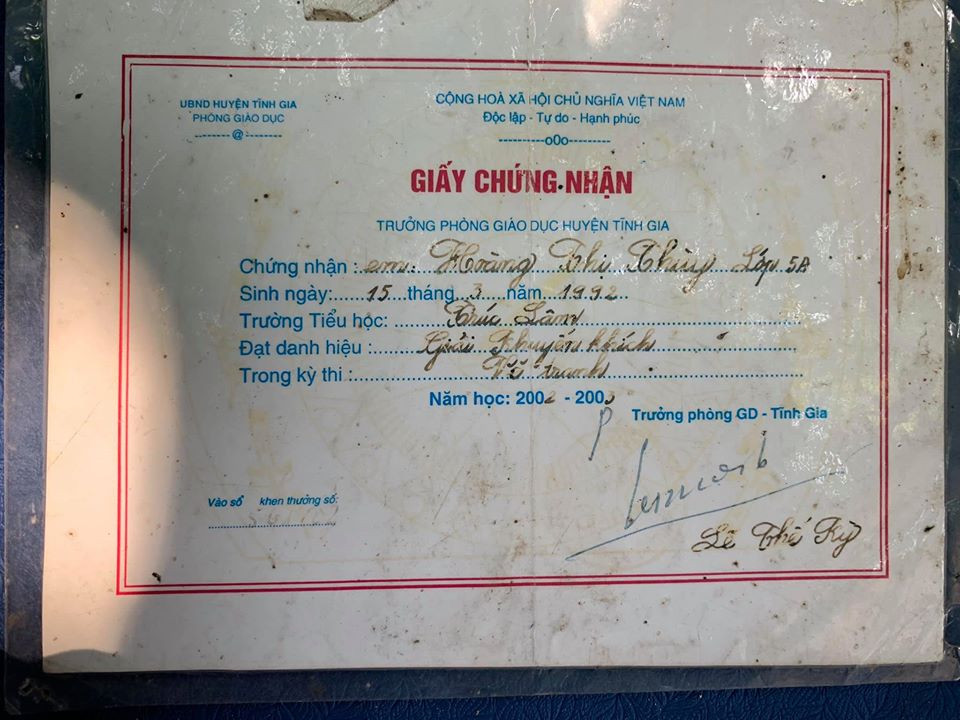 UBND HUYỆN TĨNH GIA
PHÒNG GIÁO DỤC
--------@--------
CỘNG HOÀ XÃ HỘI CHỦ NGHĨA VIỆT NAM
Độc lập - Tự do - Hạnh phúc
----------o0o---------
GIẤY CHỨNG NHẬN
TRƯỞNG PHÒNG GIÁO DỤC HUYỆN TĨNH GIA
Chứng nhận : em: Hoàng Thị Thùy Lớp 5A
Sinh ngày: 15 tháng 3 năm 1992
Trường Tiểu học: Trúc Lâm
Đạt danh hiệu : Giải Khuyến khích
Trong kỳ thi : Vẽ tranh
Năm học: 200 - 200
Trưởng phòng GD - Tĩnh Gia
P
Vào sổ khen thưởng số:
Lê Thế Kỷ